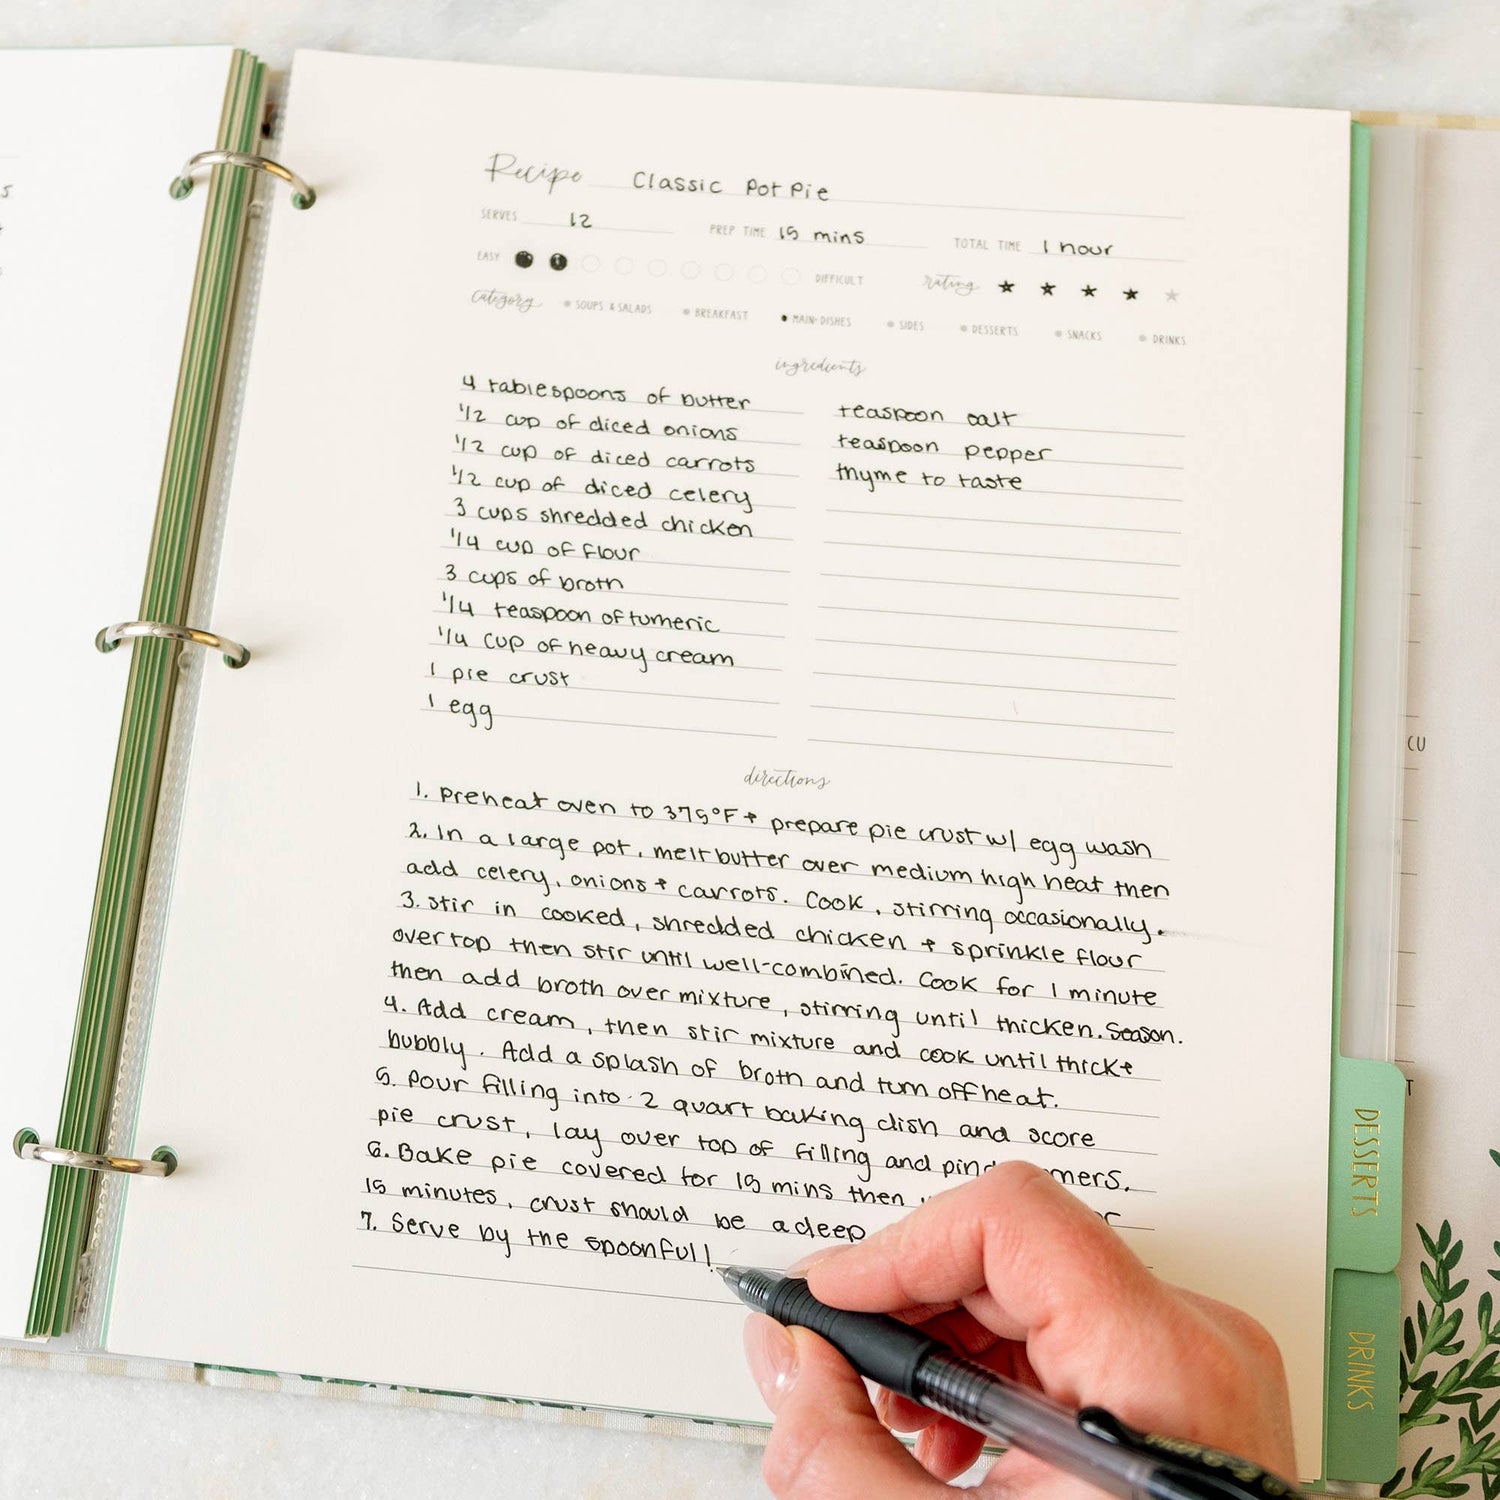 Recipe Classic Pot Pie
SERVES 12 PREP TIME 15 mins TOTAL TIME 1 hour
EASY DIFFICULT rating
category SOUPS & SALADS BREAKFAST MAIN DISHES SIDES DESSERTS SNACKS DRINKS
ingredients
4 tablespoons of butter
1/2 cup of diced onions
1/2 cup of diced carrots
1/2 cup of diced celery
3 cups shredded chicken
1/4 cup of flour
3 cups of broth
1/4 teaspoon of tumeric
1/4 cup of heavy cream
1 pie crust
1 egg
teaspoon salt
teaspoon pepper
thyme to taste
directions
1. Preheat oven to 375°F + prepare pie crust w/ egg wash
2. In a large pot, melt butter over medium high heat then
add celery, onions + carrots. Cook, stirring occasionally.
3. Stir in cooked, shredded chicken + sprinkle flour
over top then stir until well-combined. Cook for 1 minute
then add broth over mixture, stirring until thicken. Season.
4. Add cream, then stir mixture and cook until thick +
bubbly. Add a splash of broth and turn off heat.
5. Pour filling into 2 quart baking dish and score
pie crust, lay over top of filling and
6. Bake pie covered for 15 mins then
15 minutes, crust should be a deep
7. Serve by the spoonful!
DESSERTS
DRINKS
CU